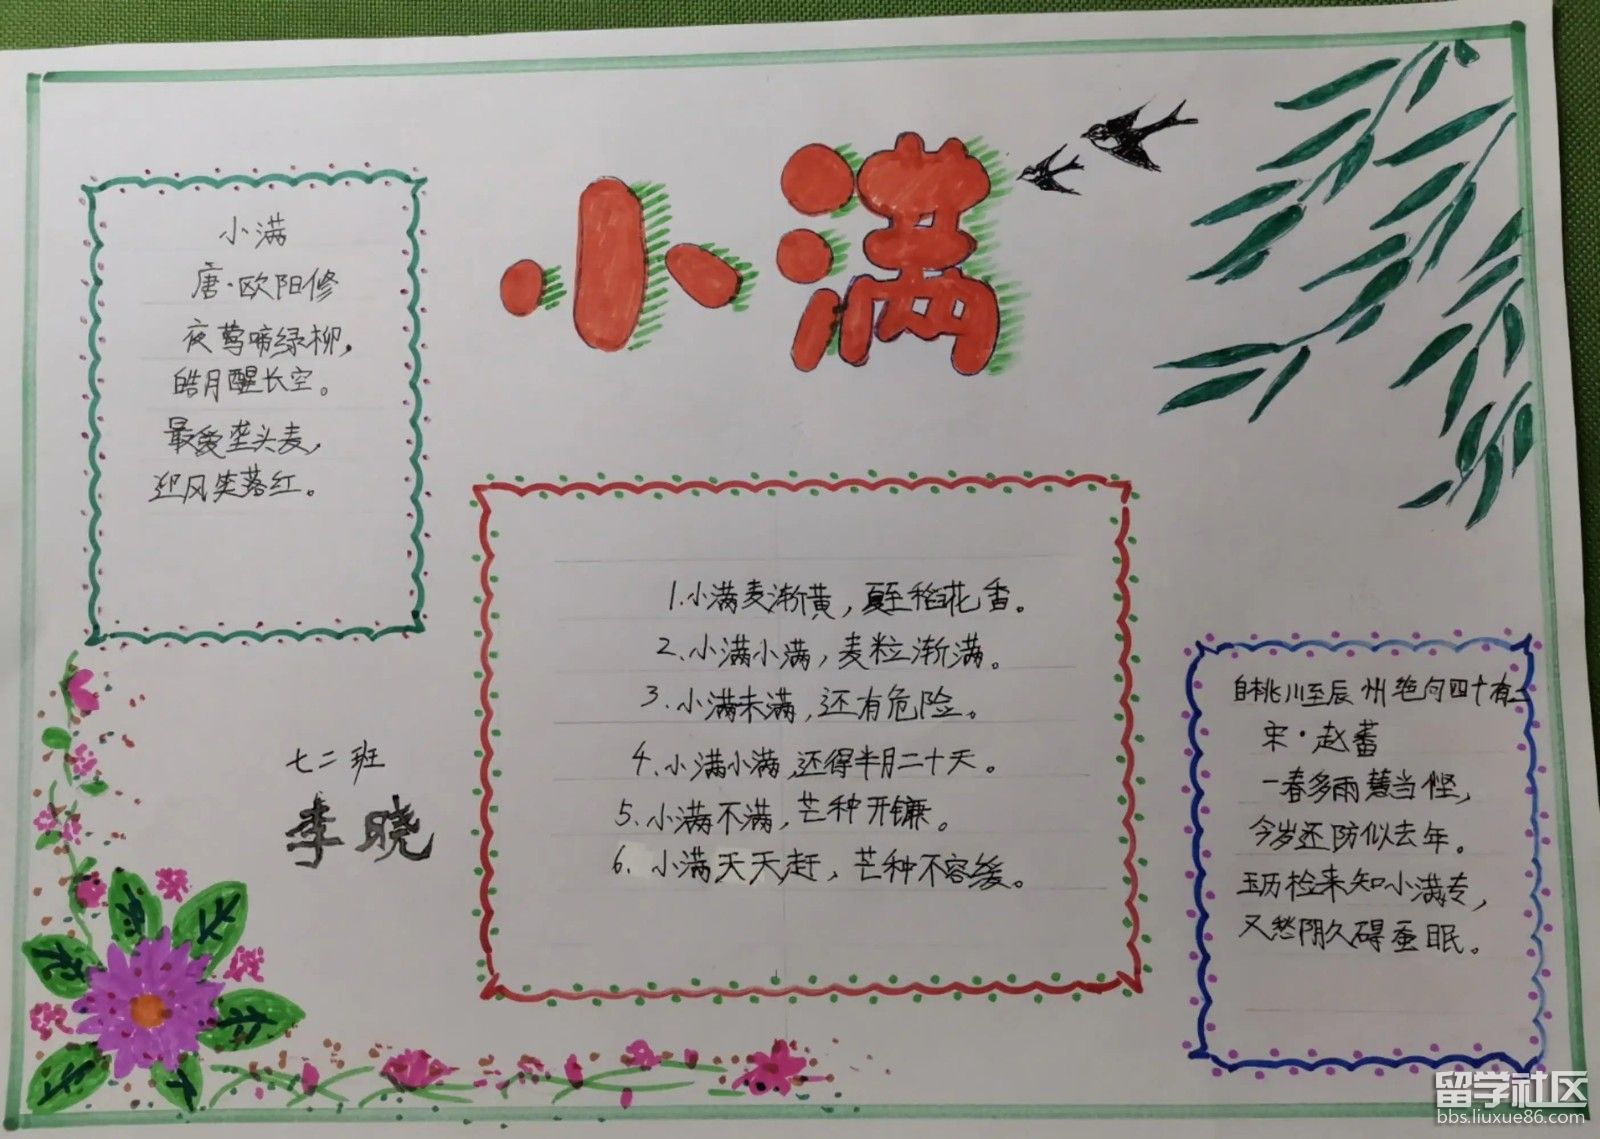 小满
小满
唐·欧阳修
夜莺啼绿柳，
皓月醒长空。
最爱垄头麦，
迎风笑落红。
1.小满麦渐黄，夏至稻花香。
2、小满小满，麦粒渐满。
3、小满未满，还有危险。
4、小满小满，还得半月二十天。
5、小满不满，芒种开镰。
6、小满天天赶，芒种不容缓。
七二班
李晓
自桃川至辰州绝句四十有二
宋·赵蕃
一春多雨慧当悭，
今岁还防似去年。
玉历检来知小满专，
又愁阴久碍蚕眠。
留学社区
bbs.liuxue86.com